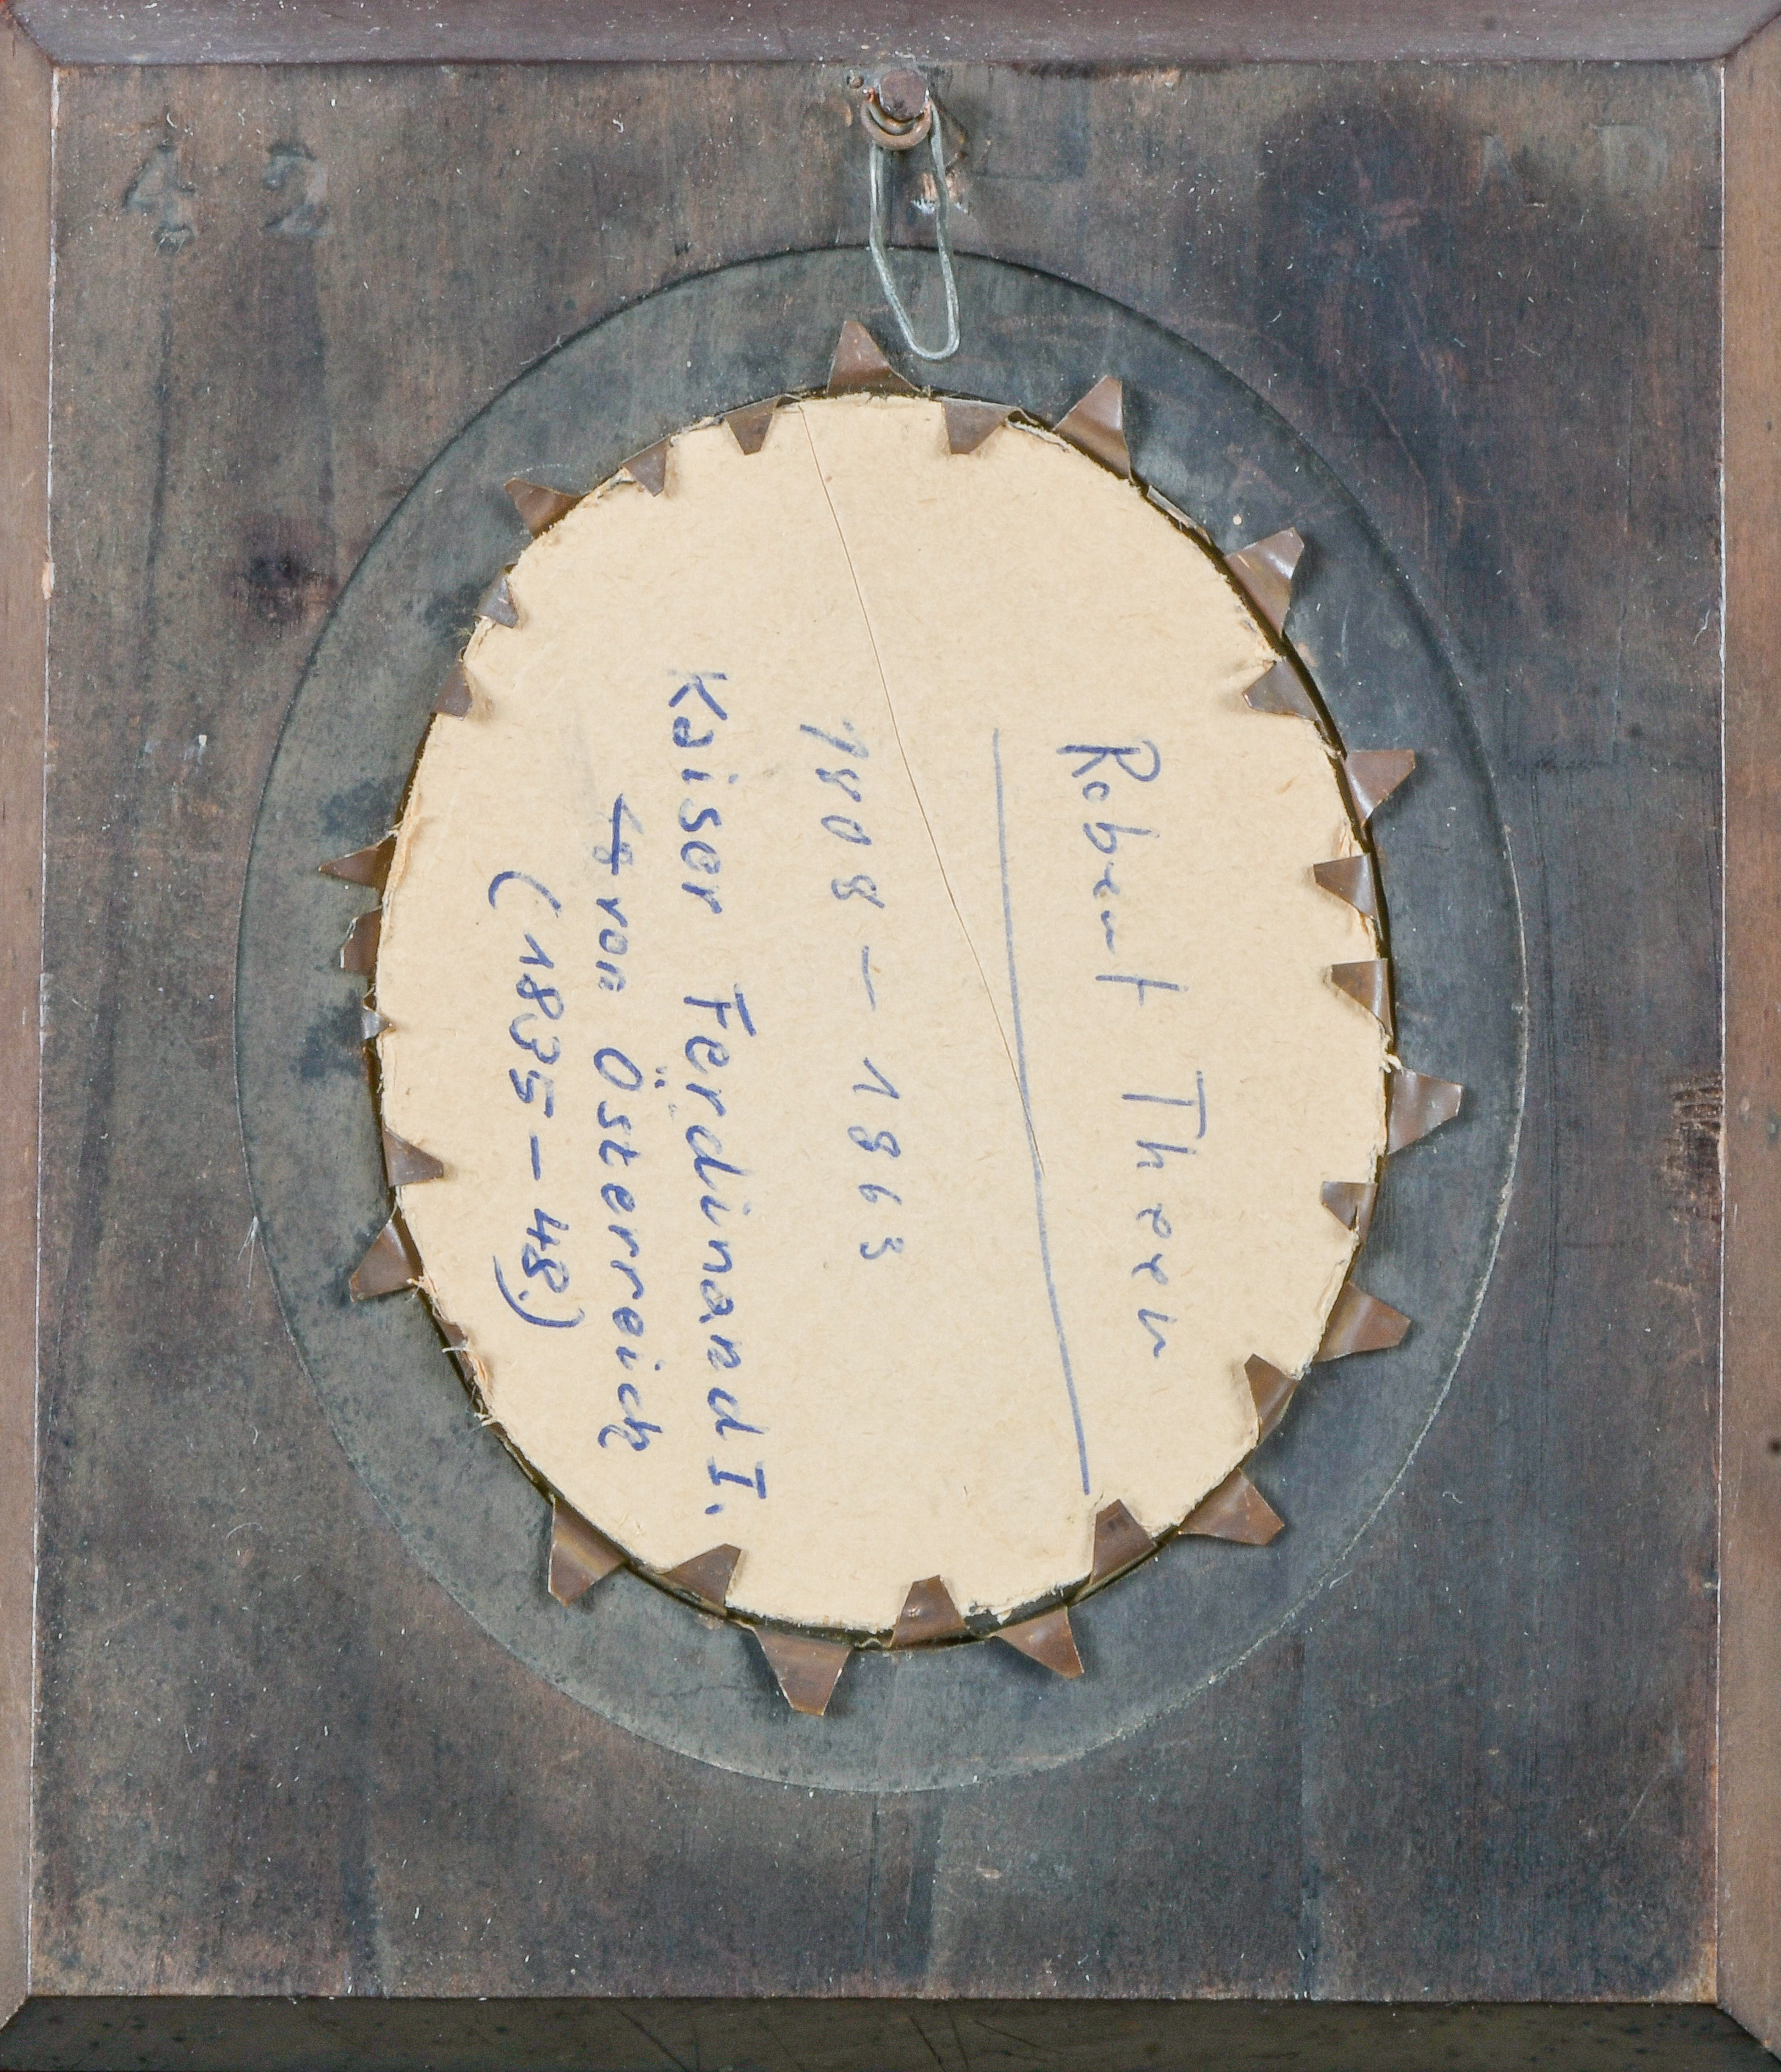 Robert Theer
1808 – 1863
Kaiser Ferdinand I.
von Österreich
(1835–48)
42